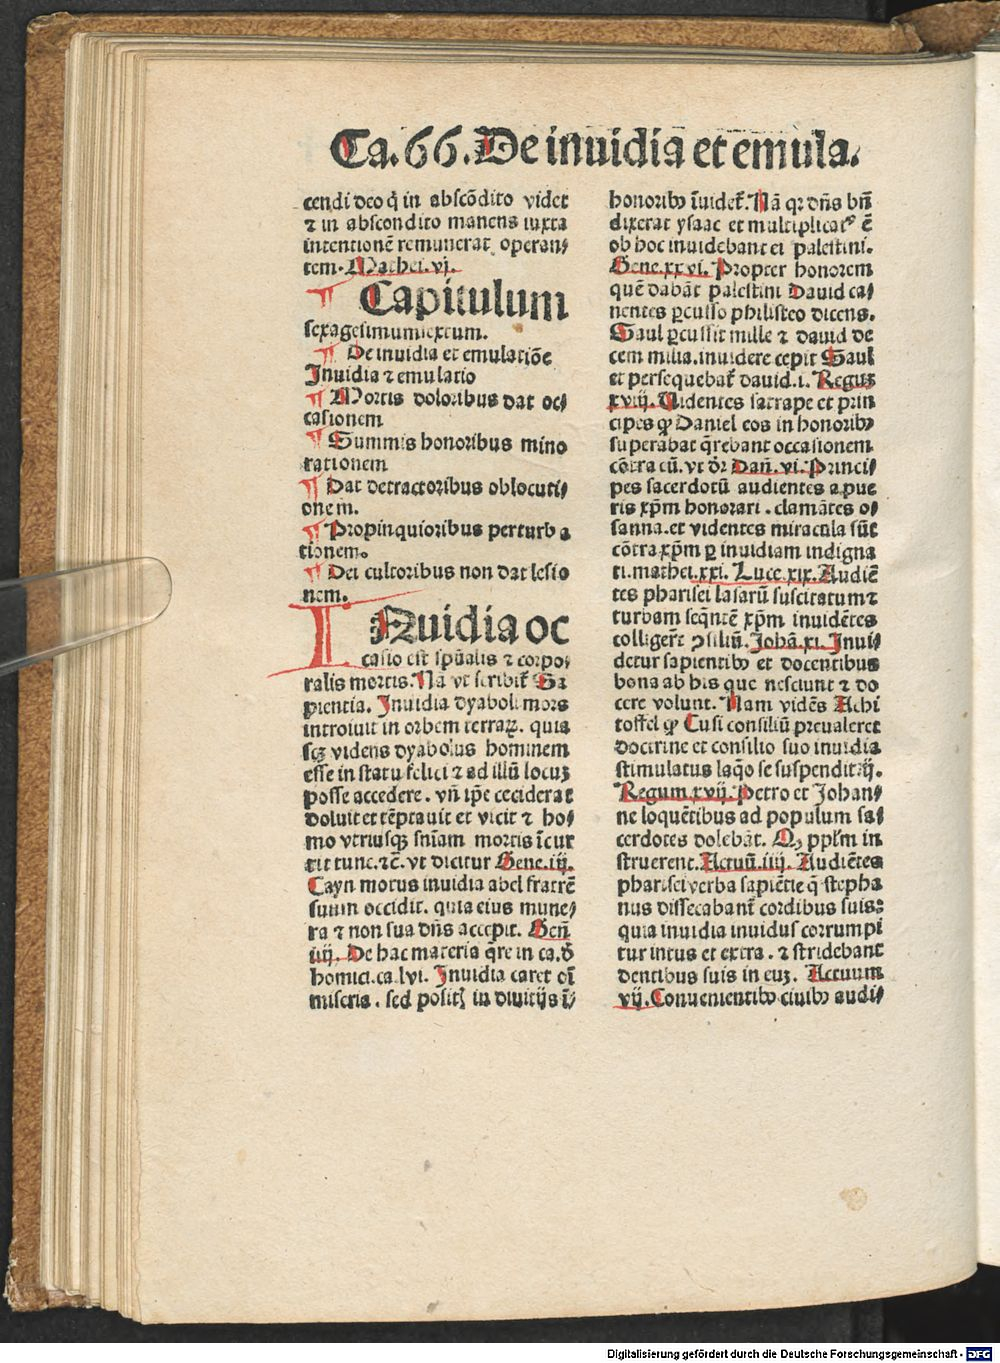 Ca.66.De inuidia et emula.
cendi deo q̇ in abscōdito videt
⁊ in abscondito manens iuxta
intentionē remunerat operan⸗
tem. Mathei.vj.
¶ Capitulum
sexagesimumsextum.
¶ De inuidia et emulatiōe
Inuidia ⁊ emulatio
¶ Mortis doloribus dat oc⸗
casionem
¶ Summis honoribus mino
rationem
¶ Dat detractoribus oblocuti⸗
onem.
¶ Propinquioribus perturba
tionem.
¶ Dei cultoribus non dat lesio
nem.
INuidia oc
casio est spūalis ⁊ corpo⸗
ralis mortis. Nā vt scribit̄ Sa
pientia. Inuidia dyaboli mors
introiuit in orbem terraꝝ. quia
scꝫ videns dyabolus hominem
esse in statu felici ⁊ ad illū locuꝫ
posse accedere. vn̄ ip̄e ceciderat
doluit et tēptauit et vicit ⁊ ho⸗
mo vtriusqꝫ sn̄iam mortis īcur
rit tunc.⁊c̄. vt dicitur Gene.iij.
Cayn motus inuidia abel fratrē
suum occidit. quia eius mune⸗
ra ⁊ non sua dn̄s accepit. Gen̄
iiij. De hac materia q̄re in ca.đ
homici.ca.lvi. Inuidia caret oī
miseria. sed posit in diuitijs ī
honoribꝫ īuidet̄. Nā qꝛ dn̄s bn̄
dixerat ysaac et multiplicatꝰ ē
ob hoc inuidebant ei palestini.
Gene.xxvi. Propter honorem
quē dabāt palestini Dauid ca⸗
nentes ꝑcusso philisteo dicens.
Saul ꝑcussit mille ⁊ dauid de
cem milia. inuidere cepit Saul
et persequebat̄ dauid.i. Reguꝫ
xviij. Uidentes satrape et prin
cipes ꝙ Daniel eos in honoribꝫ
superabat q̄rebant occasionem
cōtra eū. vt dr̄ Dan̄.vi. Princi⸗
pes sacerdotū audientes a pue
ris xp̄m honorari. clamātes o⸗
sanna. et videntes miracula sūt
cōtra xp̄m ꝑ inuidiam indigna
ti. mathei.xxi. Luce.xix. Audiē
tes pharisei lasarū suscitatum ⁊
turbam seq̄ntē xp̄m inuidētes
colliger̄t ꝯsiliū. Johā.xi. Inui⸗
detur sapientibꝫ et docentibus
bona ab his que nesciunt ⁊ do
cere volunt. Nam vidēs Achi
toffel ꝙ Cusi consiliū preualeret
doctrine et consilio suo inuidia
stimulatus laq̇o se suspendit.ij.
Regum.xvij. Petro et Johan⸗
ne loquētibus ad populum sa⸗
cerdotes dolebāt. Qꝫ pplm̄ in
struerent. Actuū.iiij. Audiētes
pharisei verba sapiētie q̄ stepha
nus dissecabant̄ cordibus suis:
quia inuidia inuidus corrumpi
tur intus et extra. ⁊ stridebant
dentibus suis in euꝫ. Actuum
vij. Conuenientibꝫ ciuibꝫ audi⸗
Digitalisierung gefördert durch die Deutsche Forschungsgemeinschaft - DFG